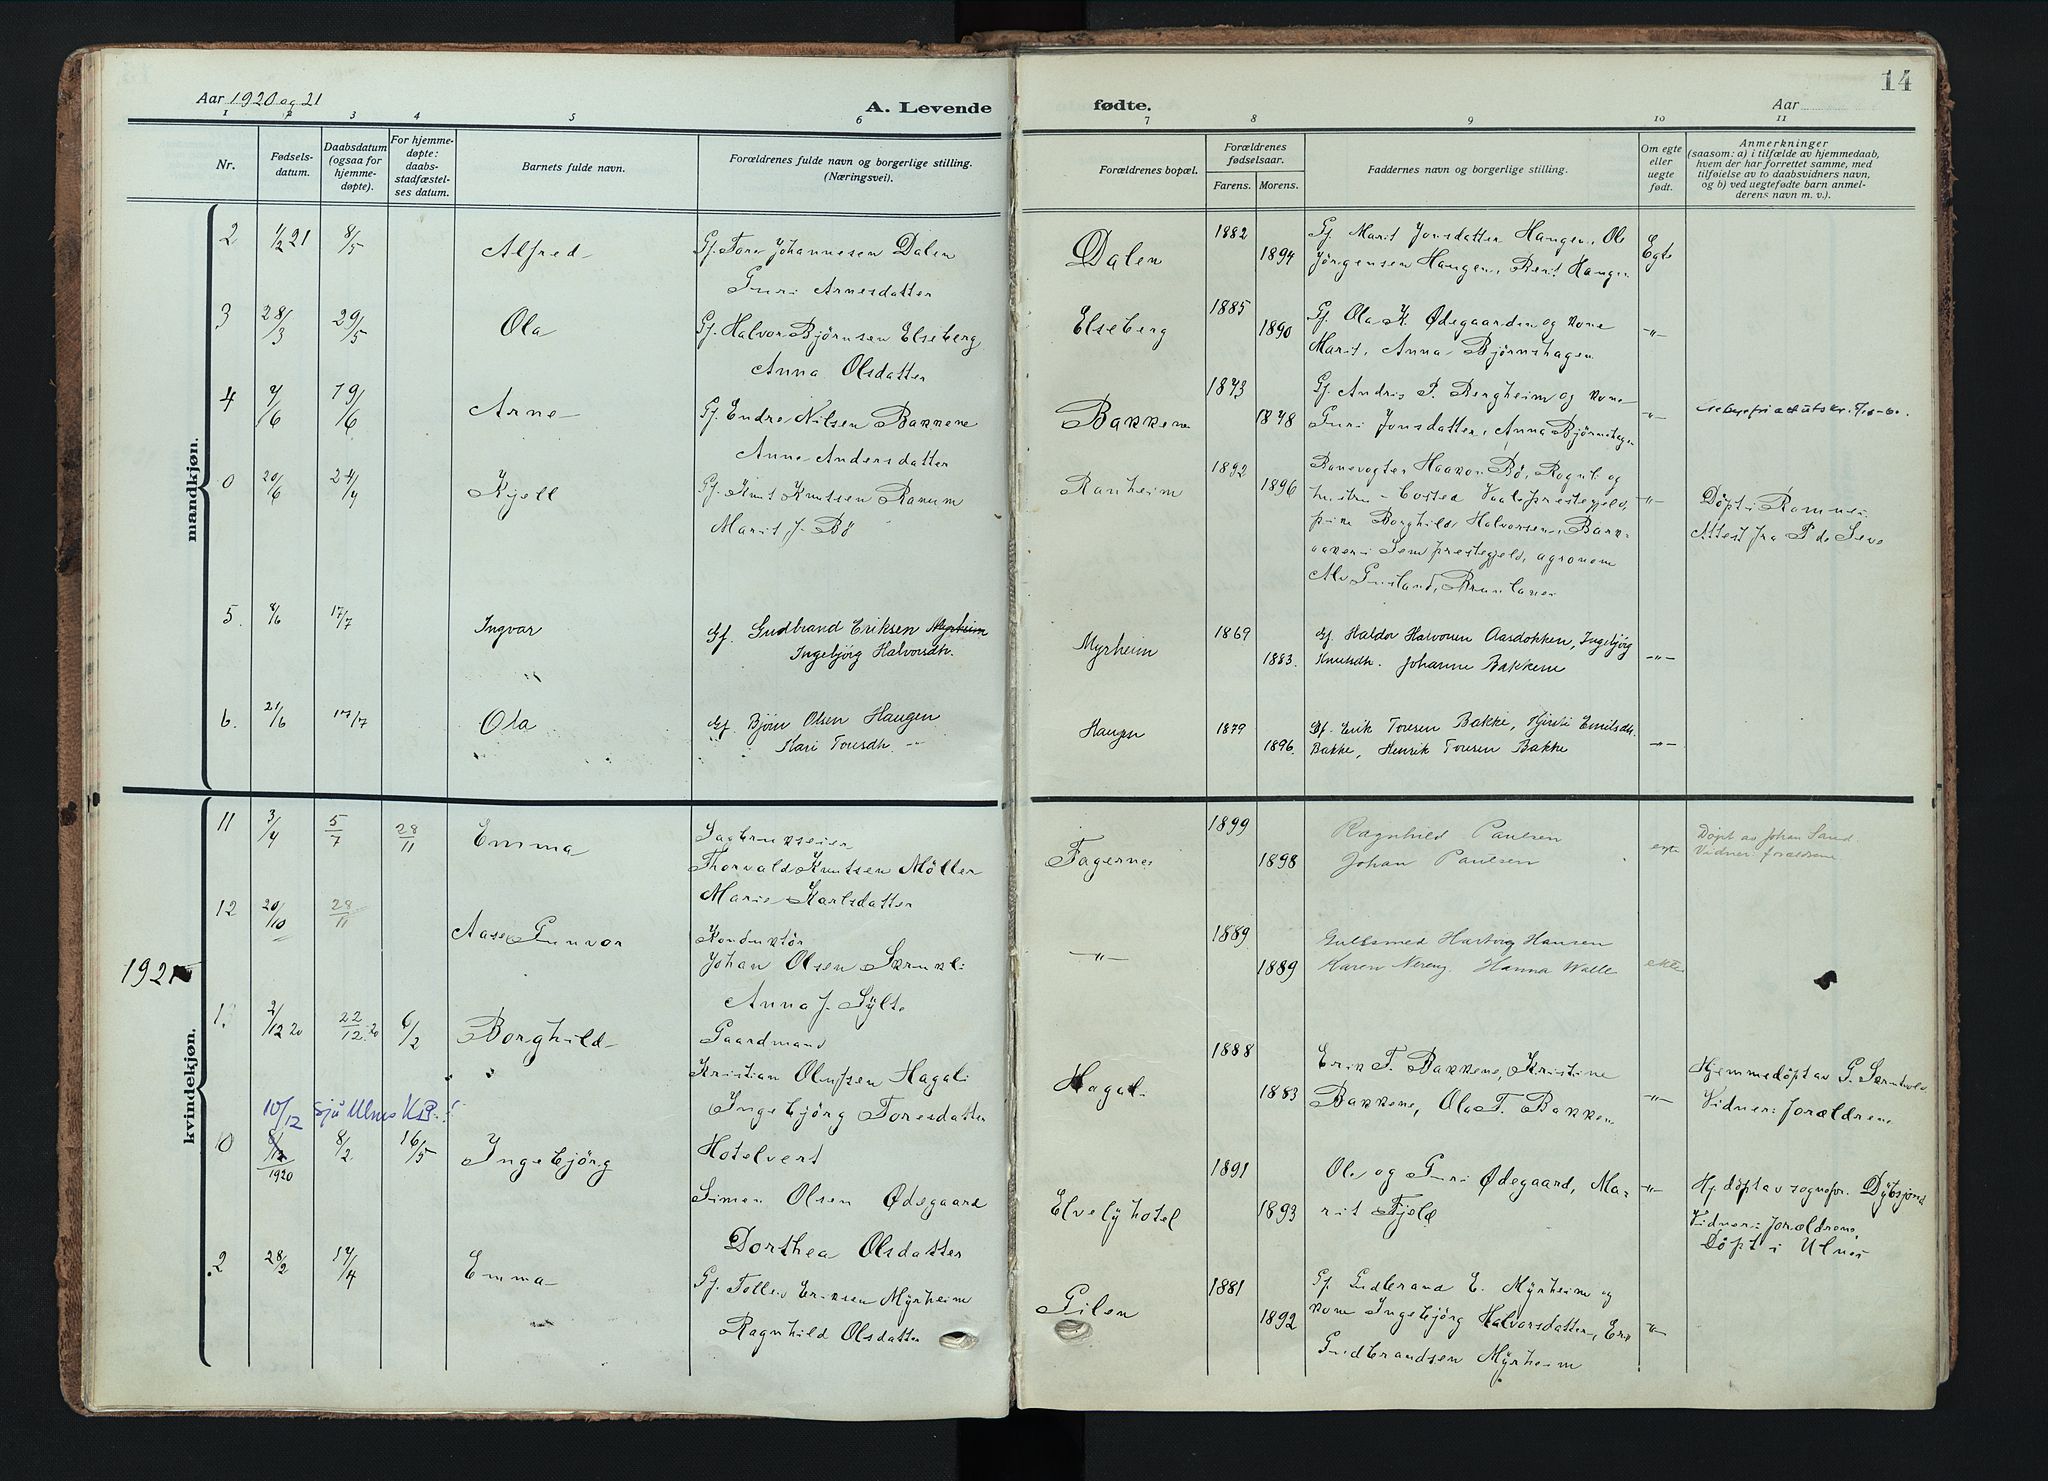 Aar 1920 og 21
A. Levende
fødte.
Aar
14
1 2 3 4 5 6 7 8 9 10 11
Nr.
Fødsels-
datum.
Daabsdatum
(ogsaa for
hjemme-
døpte).
For hjemme-
døpte:
daabs-
stadfæstel-
ses datum.
Barnets fulde navn.
Forældrenes fulde navn og borgerlige stilling.
(Næringsvei).
Forældrenes bopæl.
Forældrenes
fødselsaar.
Farens. Morens.
Faddernes navn og borgerlige stilling.
Om egte
eller
uegte
født.
Anmerkninger
(saasom: a) i tilfælde av hjemmedaab,
hvem der har forrettet samme, med
tilføielse av to daabsvidners navn,
og b) ved uegtefødte barn anmel-
derens navn m. v.).
mandkjøn.
2 1/2 21 8/5 Alfred Gf. Tore Johannesen Dalen
Guri Arnesdatter
Dalen 1882 1894
Gf. Marit Jonsdatter Haugen, Ole
Jörgensen Haugen, Berit Haugen
Egte
3 28/3 29/5 Ola Gf. Halvor Björnsen Elseberg
Anna Olsdatter
Elseberg 1885 1890
Gf. Ola K. Ødegaarden og kone
Marit, Anna Björnshagen
-"-
4 7/6 19/6 Arne Gf. Endre Nilsen Bakkene
Anne Andersdatter
Bakkene 1873 1878
Gf. Andris P. Bergheim og kone
Guri Jonsdatter, Anna Björnshagen
-"-
0 20/6 24/4 Kjell Gf. Knut Knutsen Ranum
Marit J. Bö
Ranheim 1892 1896
Banevogter Haakon Bö, Rognli og
hustru - bosted Vaale prestegjeld,
pike Borghild Halvorsen, Bark-
aaker i Sem prestegjeld, agronom
-"-
Döpt i Ramnes.
Attest fra
5. 8/6 17/7 Ingvar Gf. Gudbrand Eriksen Myrheim
Ingebjörg Halvorsdtr.
Myrheim 1869 1883.
Gf. Haldor Halvorsen Aasdokken, Ingebjörg
Knutsdtr. Johanne Bakkene
-"-
6. 21/6 17/7 Ola Gf. Björn Olsen Haugen
Kari Toresdtr. -"-
Haugen 1879 1896.
Gf. Erik Toresen Bakke, Kjersti Emilsdtr.
Bakke, Henrik Toresen Bakke
-"-
kvindekjøn.
11 3/4 5/7 28/11 Emma Sagbrukseier
Thorvald Knutsen Möller
Marie Karlsdatter
Fagernes 1899 1898
Ragnhild Paulsen
Johan Paulsen
egte
Döpt av Johan Sand.
Vidner: forældrene
12 20/10 28/11 Aase Gunvor Konduktör
Johan Olsen Skrukli
Anna J. Sylte
-"- 1889 1889
Gullsmed Hartvig Hansen
Karen Nereng. Hanna Wolle
ekte
1921
13 2/12 20 22/12 20 6/2 Borghild Gaardmand
Kristian Olufsen Hagali
Ingebjörg Toresdatter
Hagal. 1888 1883
Erik T. Bakkene, Kristine
Bakkene, Ola T. Bakken
-"-
Hjemmedöpt av G.
Vidner: Forældrene
10/12 sju Ulnes KB.!
0 8/12 1920 8/2 16/5 Ingebjörg Hotelvert
Simen Olsen Ødegaard
Dorthea Olsdatter
Elvely hotel 1891 1893
Ole og Guri Ødegaard, Ma-
rit Fjeld
-"-
Hj. döpt av sognepr. Dybsjord
Vidner: Forældrene.
Döpt i Ulnes
2 28/2 17/4 Emma Gf. Tollev Eriksen Myrheim
Ragnhild Olsdatter
Gilen 1881 1892
Gf. Gudbrand E. Myrheim og
kone Ingebjörg Halvorsdatter, Erik
Gudbrandsen Myrheim
-"-